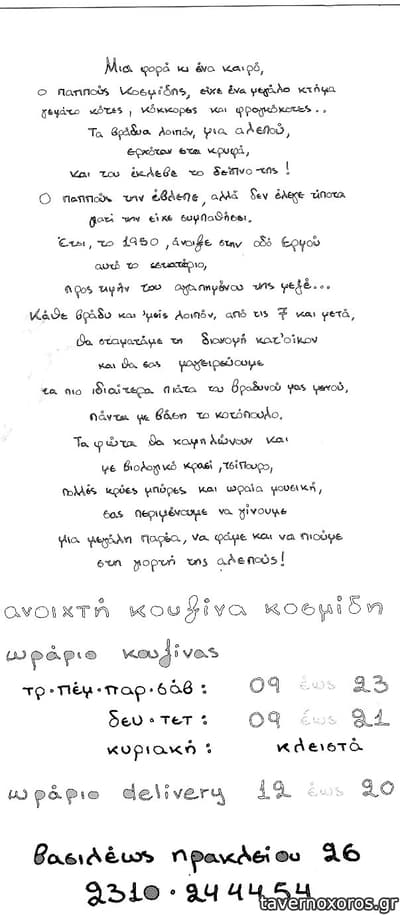 Μια φορά κι ένα καιρό,
ο παππούς Κοσμίδης, είχε ένα μεγάλο κτήμα
γεμάτο κότες, κόκκορες και φραγκόκοτες..
Τα βράδυα λοιπόν, μια αλεπού,
ερχόταν στα κρυφά,
και του έκλεβε το δείπνο της!
Ο παππούς την έβλεπε, αλλά δεν έλεγε τίποτα
γιατί την είχε συμπαθήσει.
Έτσι, το 1950, άνοιξε στην οδό Ερμού
αυτό το εστιατόριο,
προς τιμήν του αγαπημένου της μεζέ...
Κάθε βράδυ και 'μείς λοιπόν, από τις 7 και μετά,
θα σταματάμε τη διανομή κατ'οίκον
και θα σας μαγειρεύουμε
τα πιο ιδιαίτερα πιάτα του βραδυνού μας μενού,
πάντα με βάση το κοτόπουλο.
Τα φώτα θα χαμηλώνουν και
με βιολογικό κρασί, τσίπουρο,
πολλές κρύες μπύρες και ωραία μουσική,
σας περιμένουμε να γίνουμε
μια μεγάλη παρέα, να φάμε και να πιούμε
στη γιορτή της αλεπούς!
ανοιχτή κουζίνα κοσμίδη
ωράριο κουζίνας
τρ·πέμ·παρ·σάβ: 09 έως 23
δευ·τετ: 09 έως 21
κυριακή: κλειστά
ωράριο delivery 12 έως 20
βασιλέως ηρακλείου 26
2310·244454
tavernoxoros.gr